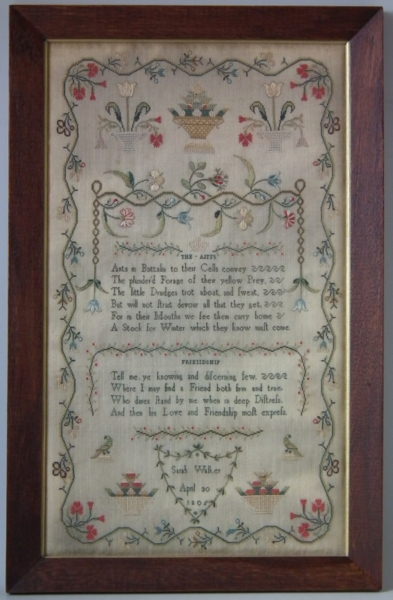 THE - ANTS
Ants in Battalia to their Cells convey
The plunder'd Forage of their yellow Prey,
The little Drudges trot about, and sweat,
But will not strait devour all that they get,
For in their Mouths we see them carry home
A Stock for Winter which they know must come.
FRIENDSHIP
Tell me ye knowing and discerning few,
Where I may find a Friend both firm and true,
Who dares stand by me when in deep Distress,
And then his Love and Friendship most express.
Sarah Walker
April 30